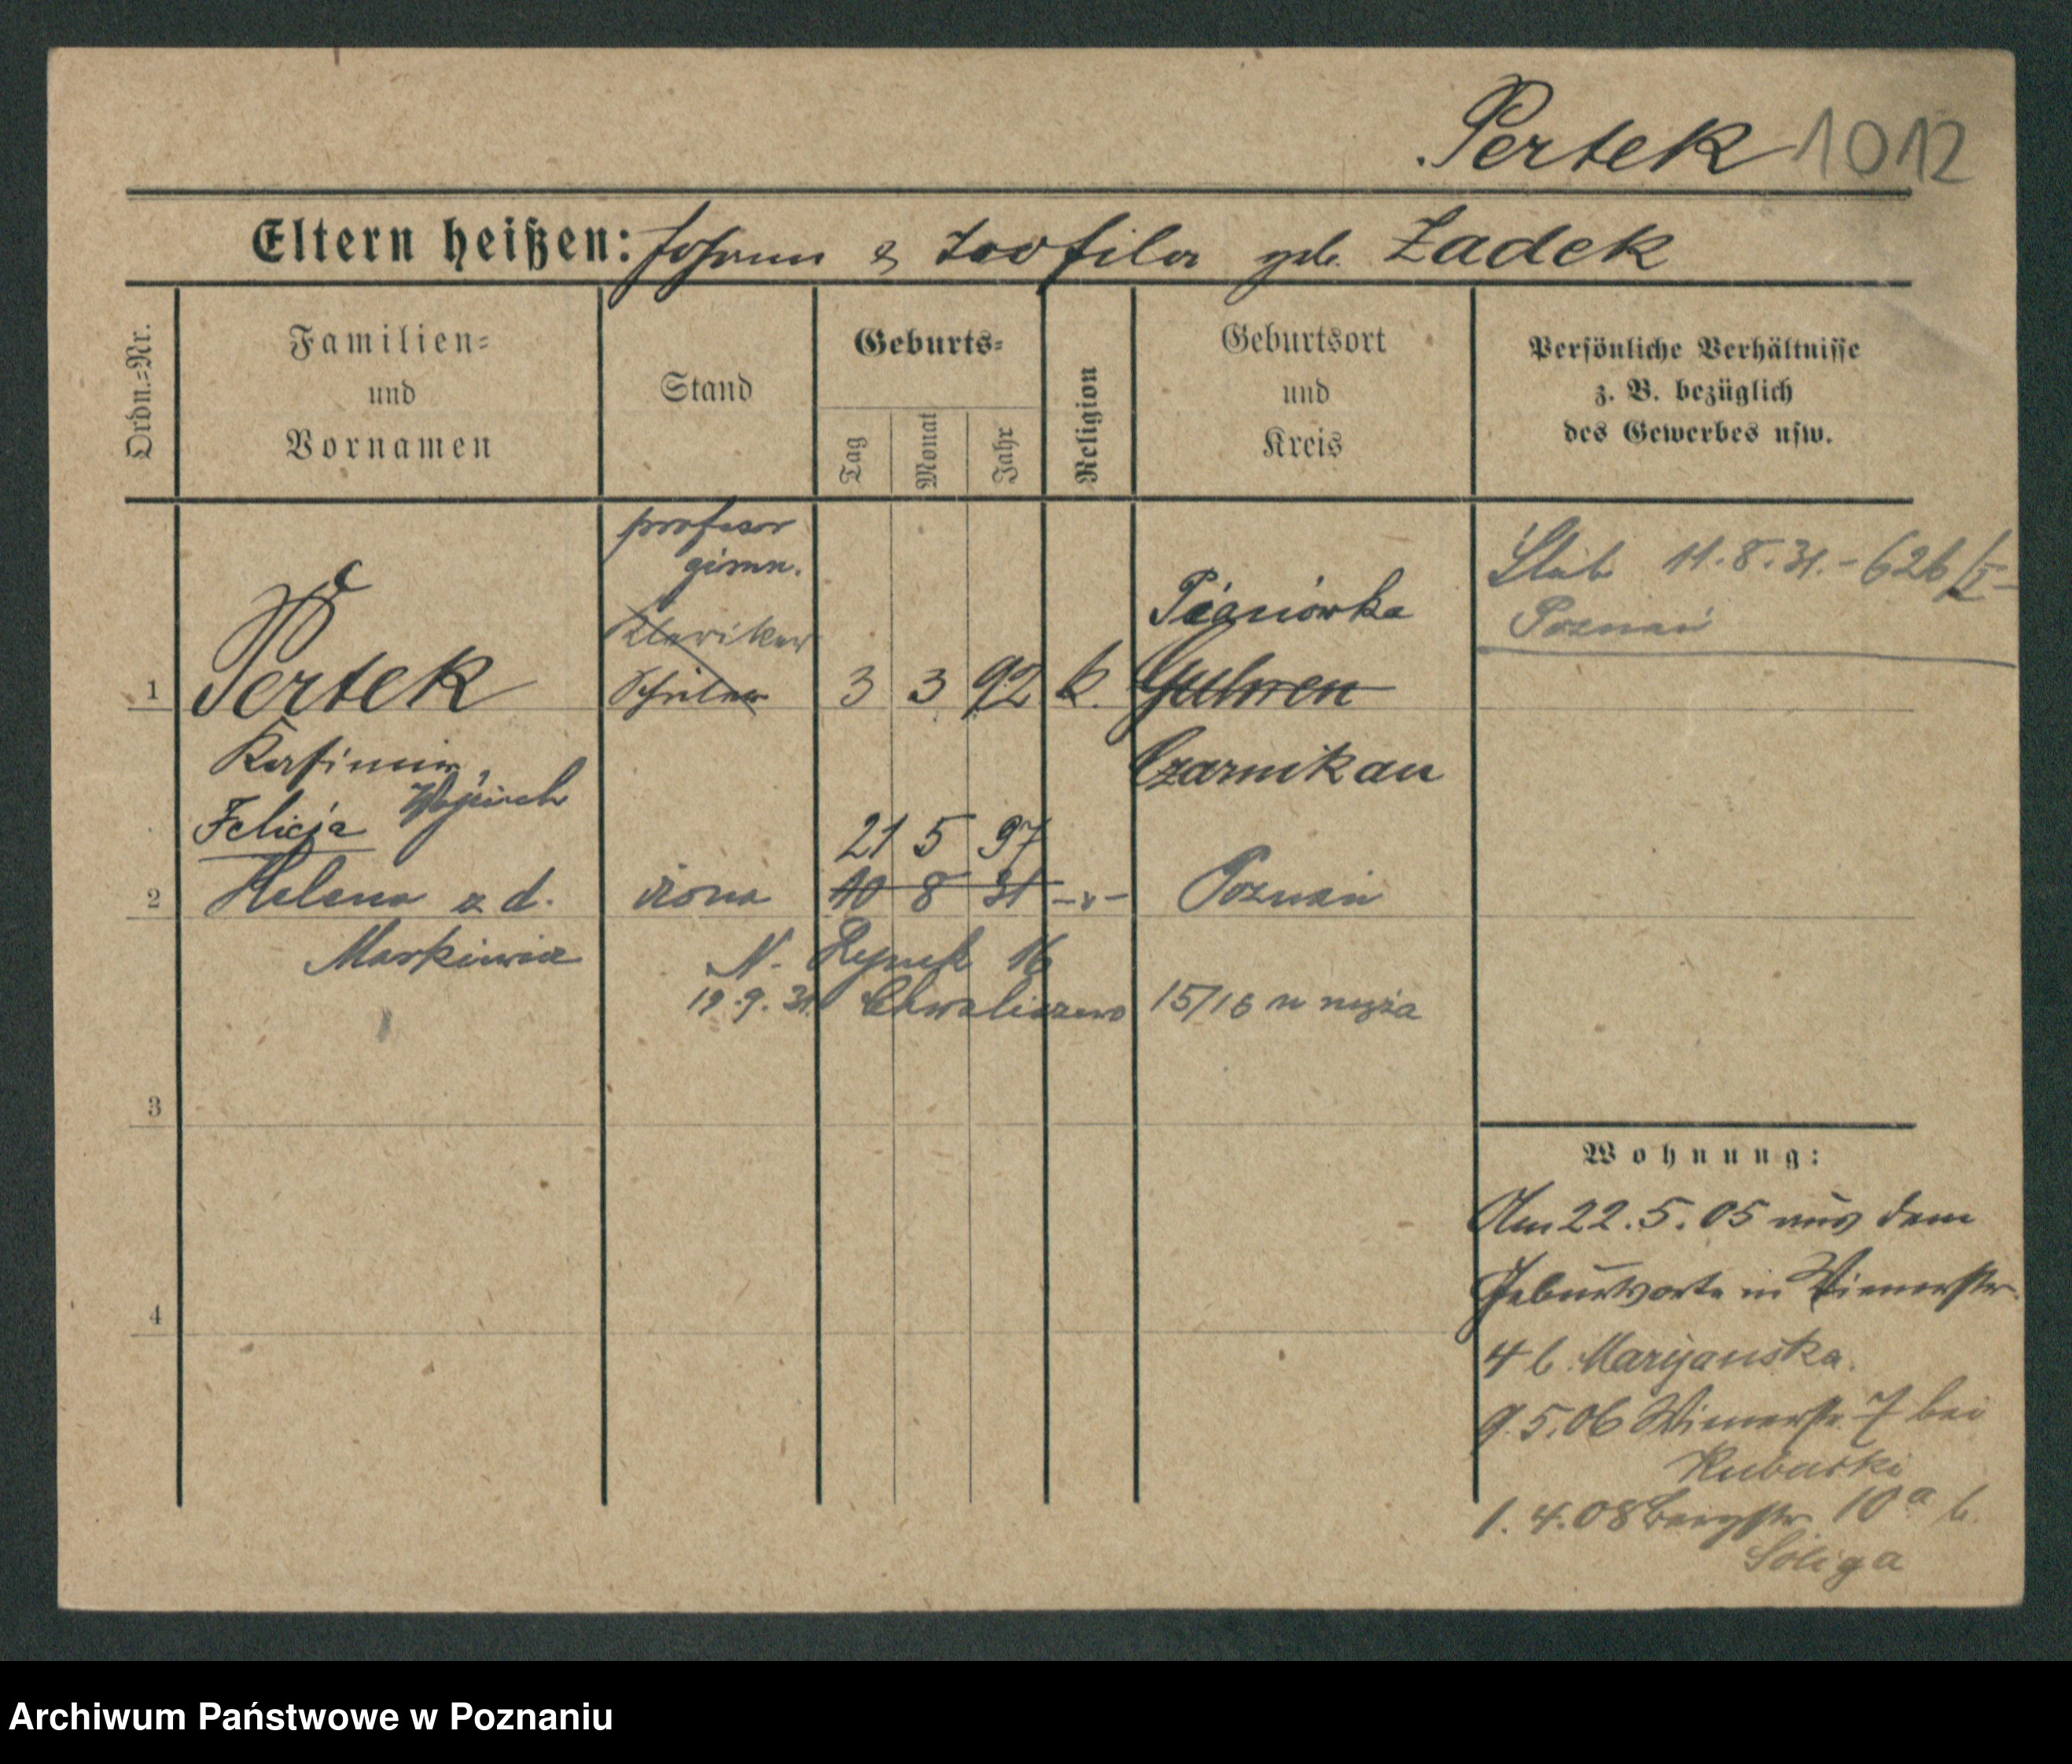 Pertek 1012
Eltern heißen: Johann & Teofila geb. Zadek
Ordn.=Nr.
Familien=
und
Vornamen
Stand
Geburts=
Tag
Monat
Jahr
Religion
Geburtsort
und
Kreis
Persönliche Verhältnisse
z. B. bezüglich
des Gewerbes usw.
profesor
gimn.
Kleriker
Schüler
1 Pertek 3 3 92 k.
Kasimir,
Wojciech
Pianówka
Guhren
Czarnikau
Ślub 11.8.31.-626/
Poznań
Felicja
21 5 97
2 Helena z d. żona 10 8 31 -„- Poznań
Markiewicz
N. Rynek 16
19.9.31 Chwaliszewo 15/16 u męża
3
4
Wohnung:
Am 22.5.05 aus dem
Geburtsorte in Wienerstr.
4 b. Maryanska.
9.5.06 Wienerstr. 7 bei
Kubacki
1.4.08 Bergstr. 10a b.
Soliga
Archiwum Państwowe w Poznaniu